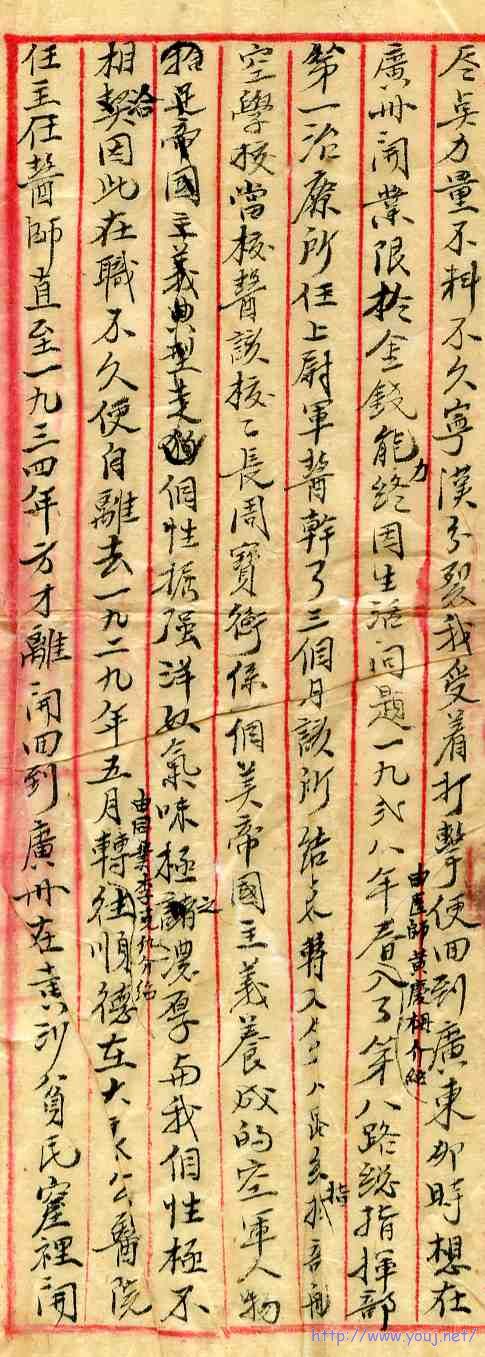 尽点力量不料不久寧漢分裂我受着打擊便回到廣東那時想在
廣州開業限於金錢能力終因生活问題一九弍八年春入了第八路総指揮部
由医師黄慶介绍
第一治療所任上尉軍醫幹了三個月該所结束轉入第八路総指
空學校當校醫該校々長周寳衡係個美帝國主義養成的空軍人物
是帝國主義典型走狗個性掘强洋奴氣味極之濃厚与我個性極不
相洽因此在職不久便自離去一九二九年五月轉往順德在大良公醫院
由同業李介绍
任主任醫師直至一九三四年方才離開回到廣州在黄沙貧民窟裡開
http://www.youj.net/